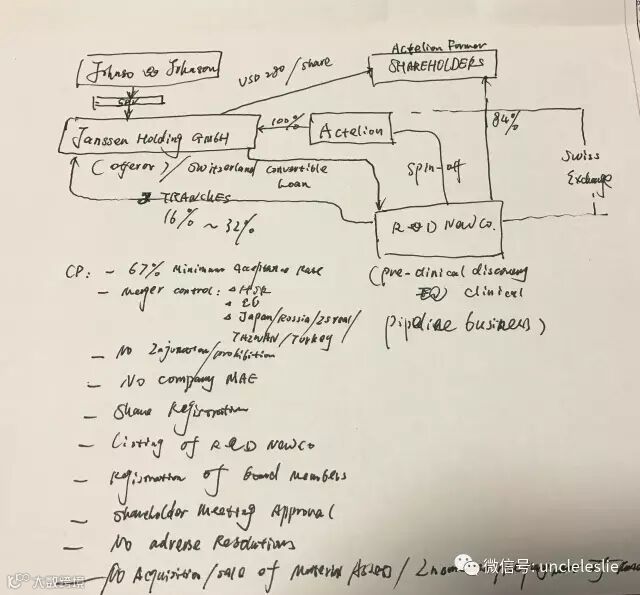 Johnson & Johnson
USD 280/share
Actelion Former
SHAREHOLDERS
SPV
Janssen Holding GmbH
100%
Actelion
84%
(offeror)/Switzerland
Convertible
Loan
Spin-off
Swiss
Exchange
2 TRANCHES
16% ~ 32%
R&D NewCo.
(pre-clinical discovery
clinical
pipeline business)
CP: - 67% Minimum Acceptance Rate
- Merger control: △ HSR
△ EU
△ Japan/Russia/Israel/
TAIWAN/Turkey
- No Injunction/prohibition
- No company MAE
- Share Registration
- Listing of R&D NewCo
- Registration of Board Members
- Shareholder Meeting Approval
- No adverse Resolutions
- No Acquisition/sale of Material Assets/
微信号: uncleleslie
大数跨境